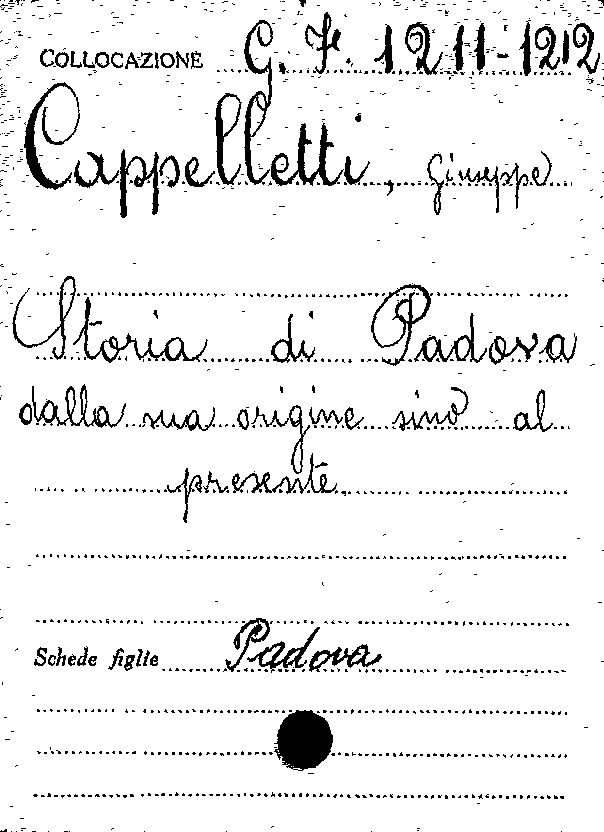 COLLOCAZIONE G. F. 1211-1212
Cappelletti, Giuseppe
Storia di Padova
dalla sua origine sino al
presente
Schede figlie Padova